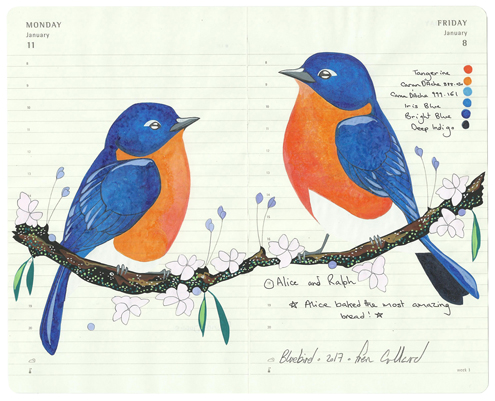 MONDAY
January
11
FRIDAY
January
8
Tangerine
Caran D'Ache
Caran D'Ache 999.161
Iris Blue
Bright Blue
Deep Indigo
Alice and Ralph
☆ Alice baked the most amazing
bread! ☆
Bluebird · 2017 ·
week 1